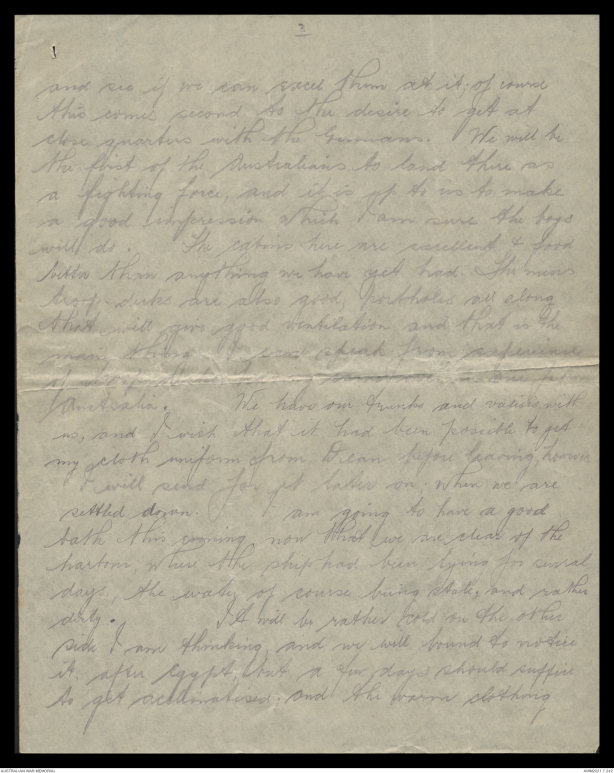 3
and see if we can excel them at it; of course
this comes second to the desire to get at
close quarters with the Germans. We will be
the first of the Australians to land there as
a fighting force, and it is up to us to make
a good impression which I am sure the boys
will do. The cabins here are excellent & food
better than anything we have yet had. The mens
troop-decks are also good, portholes all along
that will give good ventilation, and that is the
main thing. I can speak from experience
of
Australia. We have our trunks and valises with
us, and I wish that it had been possible to get
my cloth uniform from before leaving, however
I will send for it later on, when we are
settled down. I am going to have a good
bath this evening, now that we are clear of the
harbour, where the ship had been lying for several
days, the water of course being stale, and rather
dirty. It will be rather cold on the other
side I am thinking, and we will bound to notice
it after Egypt, but a few days should suffice
to get acclimatised; and the warm clothing
AUSTRALIAN WAR MEMORIAL